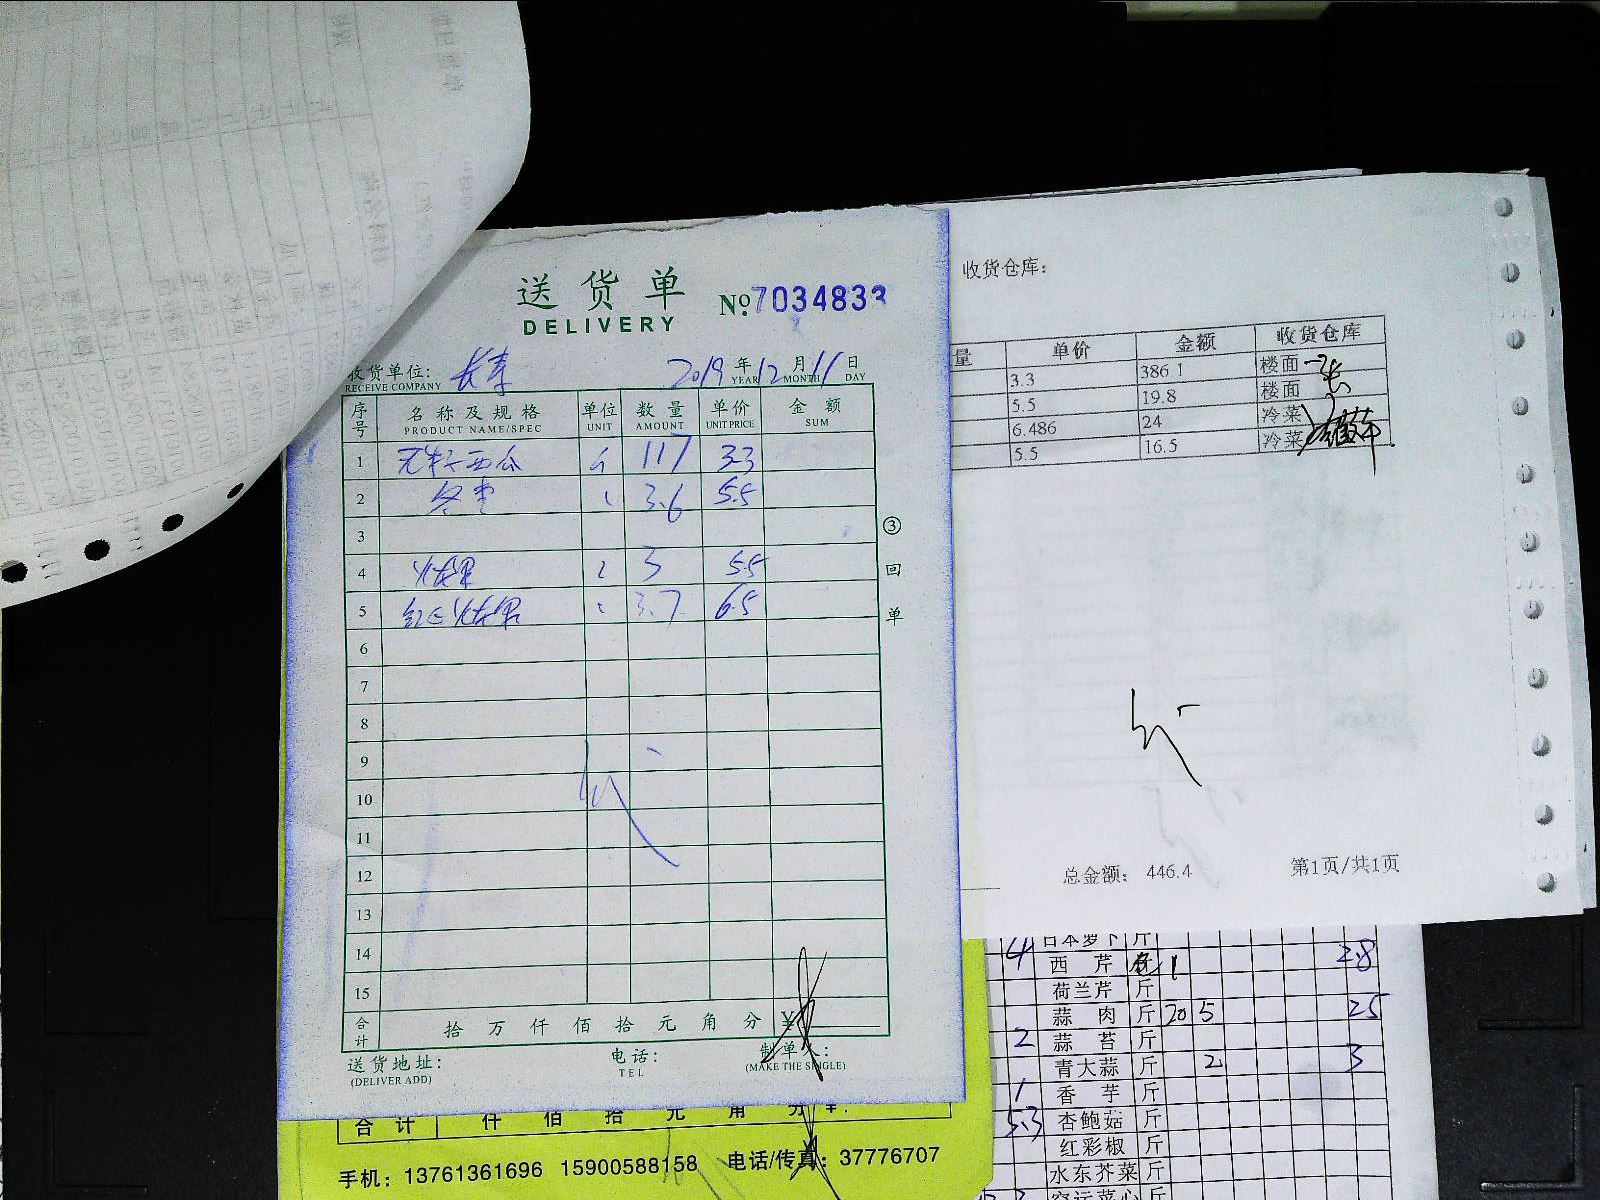 送货单
DELIVERY
No. 7034833
收货单位: 长寿 2019 年 12 月 11 日
RECEIVE COMPANY YEAR MONTH DAY
序号 名称及规格 单位 数量 单价 金额
PRODUCT NAME/SPEC UNIT AMOUNT UNIT PRICE SUM
1 无籽西瓜 斤 117 3.3
2 冬枣 3.6 5.5
3
4 火龙果 3 5.5
5 红心火龙果 3.7 6.5
6
7
8
9
10
11
12
13
14
15
合计 拾 万 仟 佰 拾 元 角 分 ¥
送货地址: 电话: 制单人:
(DELIVER ADD) TEL (MAKE THE SINGLE)
③回单
合计 仟 佰 拾 元 角 分 ¥:
手机: 13761361696 15900588158 电话/传真: 37776707
收货仓库:
量 单价 金额 收货仓库
3.3 386.1 楼面
5.5 19.8 楼面
6.486 24 冷菜
5.5 16.5 冷菜
总金额: 446.4 第1页/共1页
4 日本萝卜 斤
西芹 1 2.8
荷兰芹 斤
蒜肉 斤 20 5 25
2 蒜苔 斤
青大蒜 斤 2 3
1 香芋 斤
5.3 杏鲍菇 斤
红彩椒 斤
水东芥菜 斤